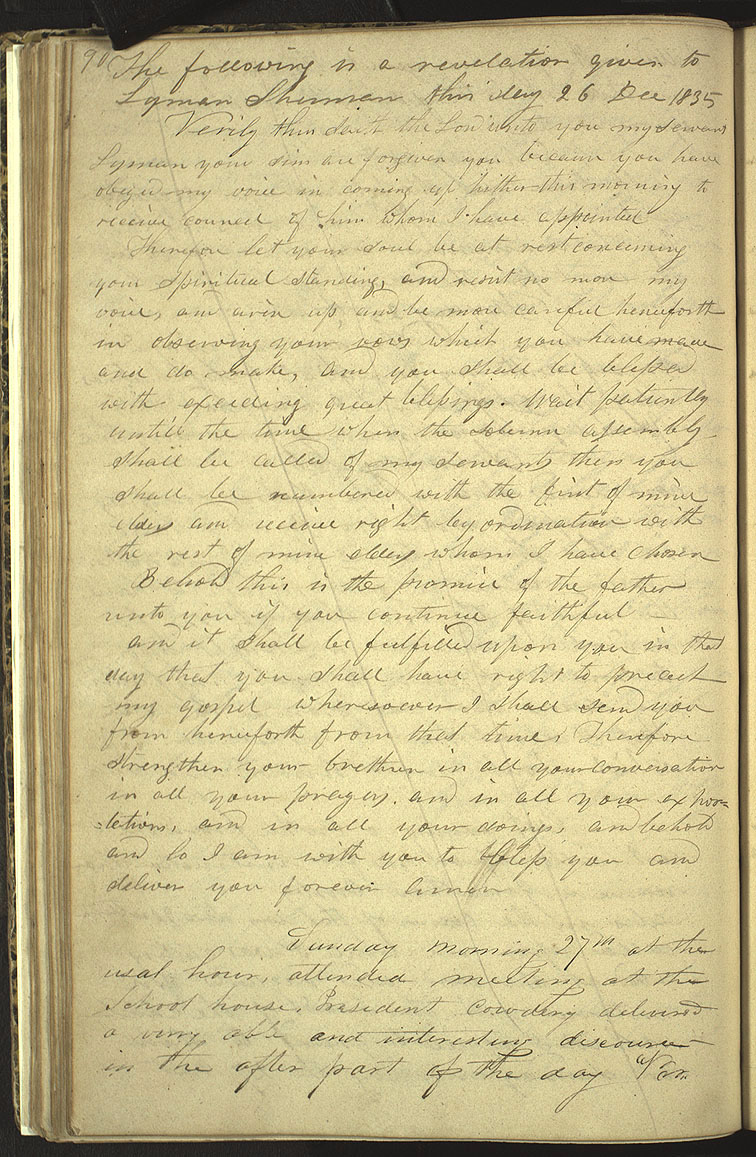 90
The following is a revelation given to
Lyman Sherman this day 26 Dec 1835
Verily thus saith the Lord unto you my servant
Lyman your sins are forgiven you because you have
obeyed my voice in coming up hither this morning to
receive councel of him whom I have appointed
Therefore let your soul be at rest concerning
your spiritual standing, and resist no more my
voice, and arise up and be more careful henceforth
in observing your vows which you have made
and do make, and you shall be blessed
with exceding great blessings. Wait patiently
untill the time when the solemn assembly
shall be called of my servants then you
shall be numbered with the first of mine
elders and receive right by ordination with
the rest of mine elders whom I have chosen
Behold this is the promise of the father
unto you if you continue faithful
and it shall be fulfilled upon you in that
day that you shall have right to preach
my gospel wheresoever I shall send you
from henceforth from that time, Therefore
strengthen your brethren in all your conversation
in all your prayers, and in all your exhor=
=tations, and in all your doings, and behold
and lo I am with you to bless you and
deliver you forever Amen
Sunday morning 27th at the
usal hour, attended meeting at the
School house, President Cowdery delivered
a very able and interesting discourse—
in the after part of the day